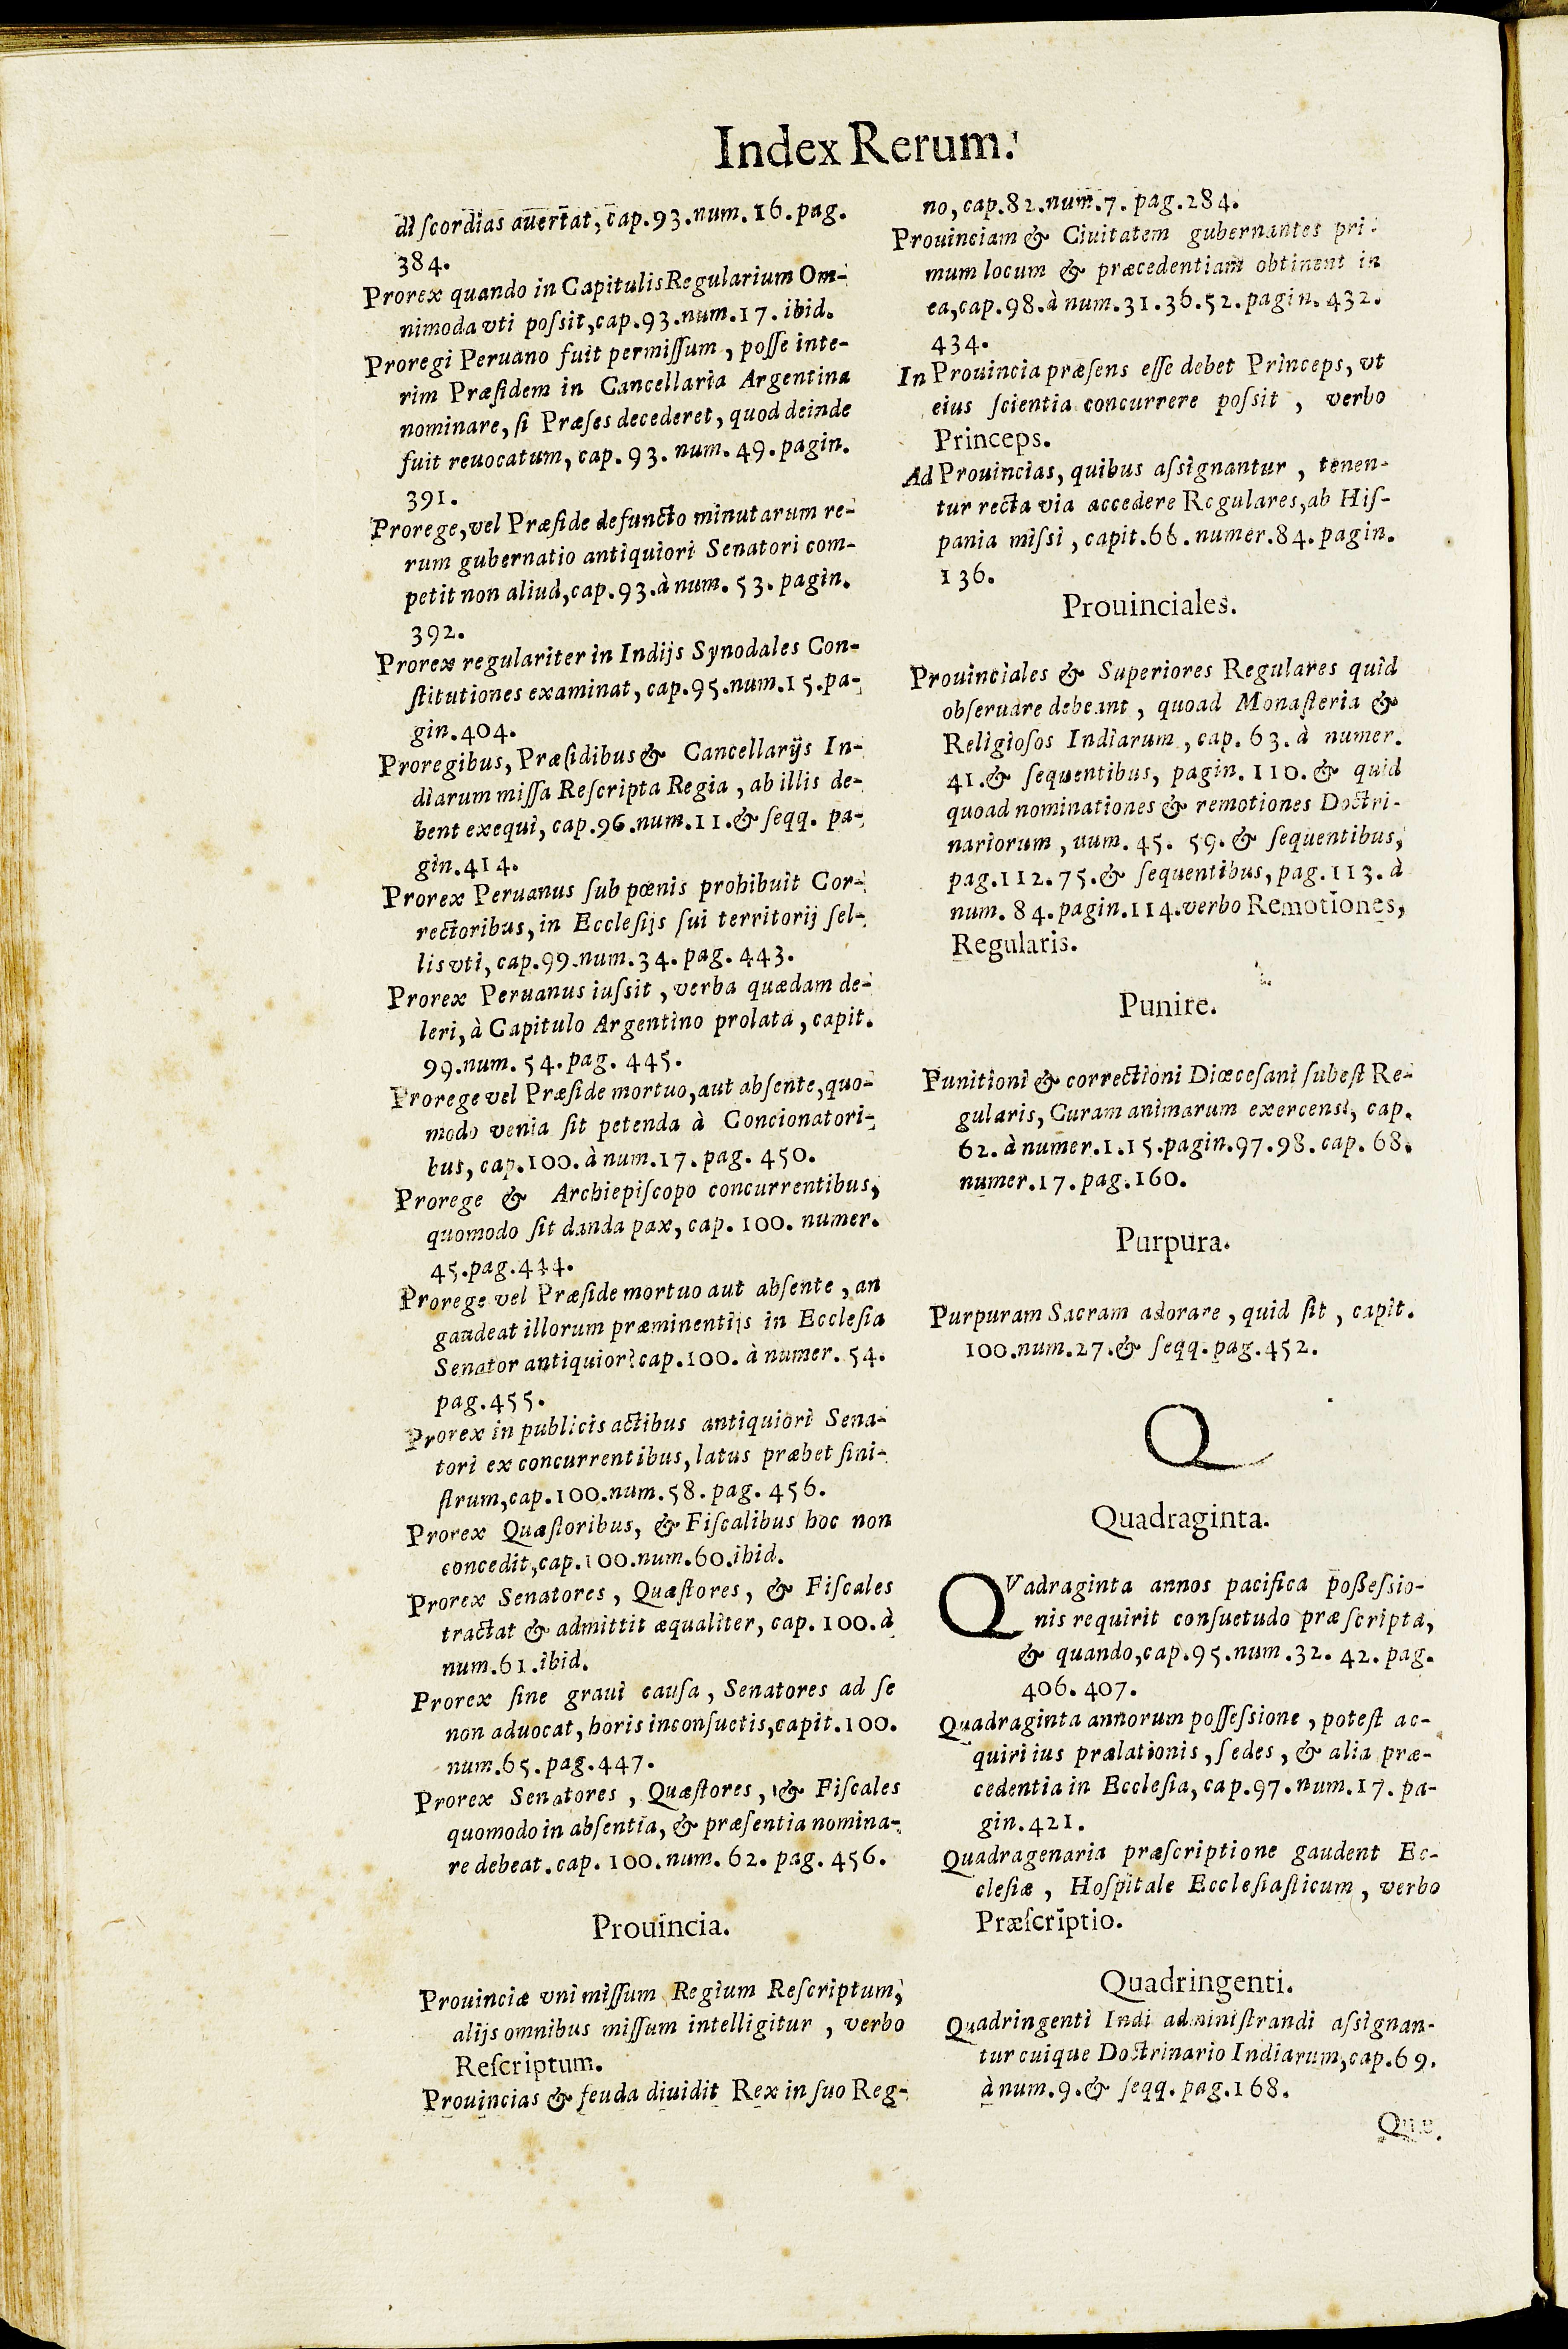 Index Rerum.
diſcordias auertat, cap.93.num.16.pag.
384.
Prorex quando in Capitulis Regularium Om-
nimoda vti poſsit,cap.93.num.17.ibid.
Proregi Peruano fuit permiſſum, poſſe inte-
rim Præſidem in Cancellaria Argentina
nominare, ſi Præſes decederet, quod deinde
fuit reuocatum, cap.93. num.49.pagin.
391.
Prorege, vel Præſide defuncto minutarum re-
rum gubernatio antiquiori Senatori com-
petit non aliud,cap.93.à num.53.pagin.
392.
Prorex regulariter in Indijs Synodales Con-
ſtitutiones examinat, cap.95.num.15.pa-
gin.404.
Proregibus, Præſidibus & Cancellarijs In-
diarum miſſa Reſcripta Regia, ab illis de-
bent exequi, cap.96.num.11.& ſeqq. pa-
gin.414.
Prorex Peruanus ſub pœnis prohibuit Cor-
rectoribus, in Eccleſijs ſui territorij ſel-
lis vti, cap.99.num.34.pag.443.
Prorex Peruanus iuſsit, verba quædam de-
leri, à Capitulo Argentino prolata, capit.
99.num.54.pag.445.
Prorege vel Præſide mortuo, aut abſente, quo-
modo venia ſit petenda à Concionatori-
bus, cap.100.à num.17.pag.450.
Prorege & Archiepiſcopo concurrentibus,
quomodo ſit danda pax, cap.100. numer.
45.pag.444.
Prorege vel Præſide mortuo aut abſente, an
gaudeat illorum præminentijs in Eccleſia
Senator antiquior? cap.100. à numer.54.
pag.455.
Prorex in publicis actibus antiquiori Sena-
tori ex concurrentibus, latus præbet ſini-
ſtrum,cap.100.num.58.pag.456.
Prorex Quæſtoribus, & Fiſcalibus hoc non
concedit,cap.100.num.60.ibid.
Prorex Senatores, Quæſtores, & Fiſcales
tractat & admittit æqualiter, cap.100.à
num.61.ibid.
Prorex ſine graui cauſa, Senatores ad ſe
non aduocat, horis inconſuetis,capit.100.
num.65.pag.447.
Prorex Senatores, Quæſtores, & Fiſcales
quomodo in abſentia, & præſentia nomina-
re debeat.cap.100.num.62.pag.456.
Prouincia.
Prouinciæ vni miſſum Regium Reſcriptum,
alijs omnibus miſſum intelligitur, verbo
Reſcriptum.
Prouincias & feuda diuidit Rex in ſuo Reg-
no, cap.82.num.7.pag.284.
Prouinciam & Ciuitatem gubernantes pri-
mum locum & præcedentiam obtinent in
ea,cap.98.à num.31.36.52.pagin.432.
434.
In Prouincia præſens eſſe debet Princeps, vt
eius ſcientia concurrere poſsit, verbo
Princeps.
Ad Prouincias, quibus aſsignantur, tenen-
tur recta via accedere Regulares, ab Hiſ-
pania miſsi, capit.66.numer.84.pagin.
136.
Prouinciales.
Prouinciales & Superiores Regulares quid
obſeruare debeant, quoad Monaſteria &
Religioſos Indiarum, cap.63.à numer.
41.& ſequentibus, pagin.110.& quid
quoad nominationes & remotiones Doctri-
nariorum, num.45. 59.& ſequentibus,
pag.112.75.& ſequentibus, pag.113.à
num.84.pagin.114.verbo Remotiones,
Regularis.
Punire.
Punitioni & correctioni Diœceſani ſubeſt Re-
gularis, Curam animarum exercens, cap.
62.à numer.1.15.pagin.97.98.cap.68.
numer.17.pag.160.
Purpura.
Purpuram Sacram adorare, quid ſit, capit.
100.num.27.& ſeqq.pag.452.
Q
Quadraginta.
QVadraginta annos pacifica poßeſsio-
nis requirit conſuetudo præſcripta,
& quando,cap.95.num.32.42.pag.
406.407.
Quadraginta annorum poſſeſsione, poteſt ac-
quiri ius prælationis, ſedes, & alia præ-
cedentia in Eccleſia, cap.97.num.17.pa-
gin.421.
Quadragenaria præſcriptione gaudent Ec-
cleſiæ, Hoſpitale Eccleſiaſticum, verbo
Præſcriptio.
Quadringenti.
Quadringenti Indi adminiſtrandi aſsignan-
tur cuique Doctrinario Indiarum,cap.69.
à num.9.& ſeqq.pag.168.